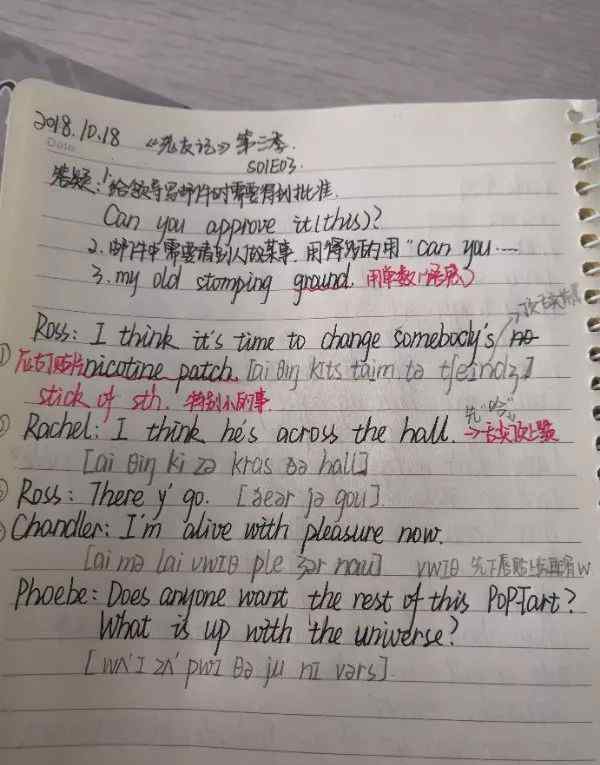 2018.10.18 《老友记》第二季.
Date
S01E03.
答疑: 1. 给领导写邮件时需要得到批准.
Can you approve it(this)?
2. 邮件中需要请别人做某事, 用 "can you ....
3. my old stomping ground. 用单数(语感)
Ross: I think it's time to change somebody's
① 尼古丁贴片 nicotine patch. [ai θiŋ kIts taim tə tʃeindʒ]
stick of sth. 特别小的事.
Rachel: I think he's across the hall. →舌尖顶上颚
[ai θiŋ ki zə kras ðə hall]
Ross: There y' go. [ðeər jə gou].
Chandler: I'm alive with pleasure now.
[ai mə lai vwIθ ple ʒər nau] vwIθ
Phoebe: Does anyone want the rest of this PopTart?
What is up with the universe?
[wʌ'I zʌ' pwI θə ju nI vərs].